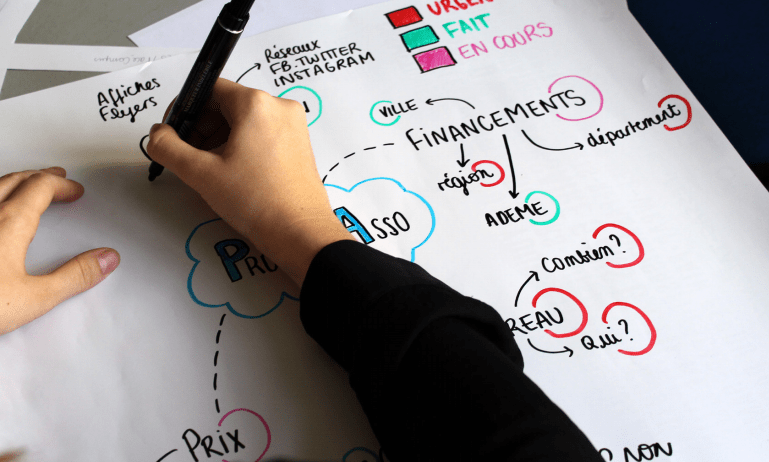 FAIT
EN COURS
Réseaux
FB. TWITTER
INSTAGRAM
Affiches
Flyers
VILLE
FINANCEMENTS
département
région
ADEME
ASSO
Combien?
Qui?
PRIX
NON